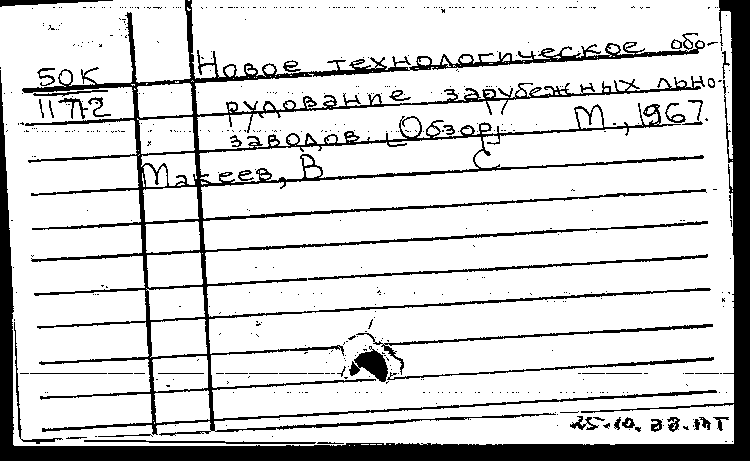 50К Новое технологическое обо-
11712 рудование зарубежных льно-
заводов. [Обзор]. М., 1967.
Макеев, В С
25.10.